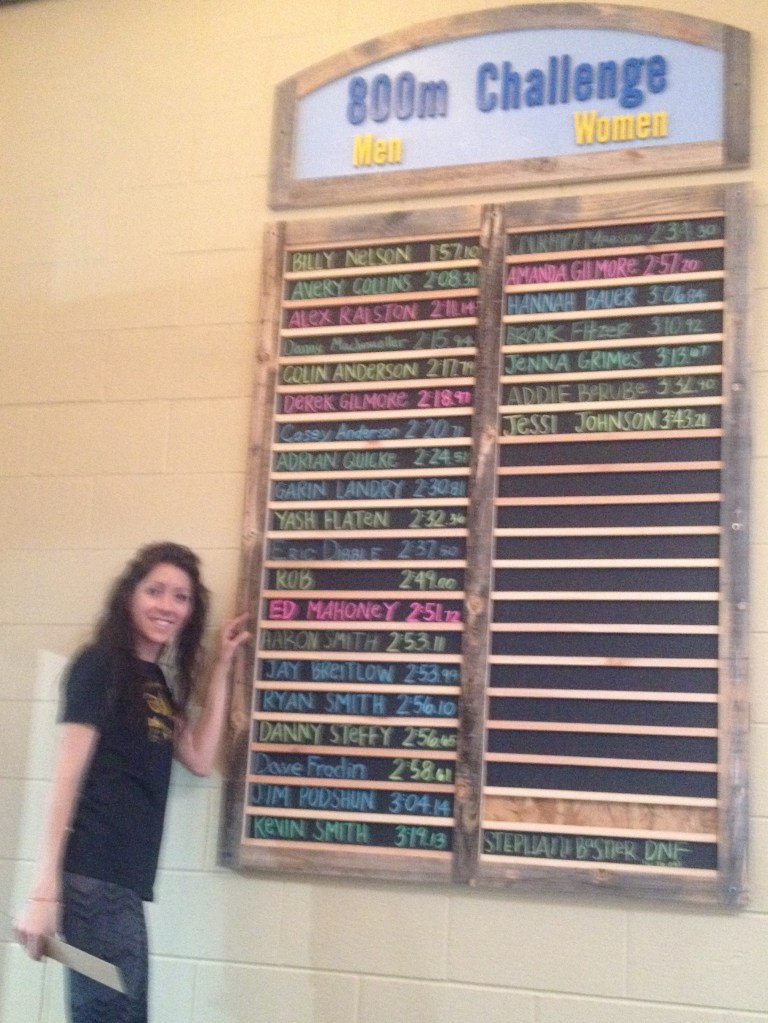 800m Challenge
Men Women
BILLY NELSON 1:57.10
AVERY COLLINS 2:08.31
ALEX RALSTON 2:11.14
Danny 2:15
COLIN ANDERSON 2:17.79
DEREK GILMORE 2:18.97
Casey Anderson 2:20.71
ADRIAN QUICKE 2:24.51
GARIN LANDRY 2:30.81
YASH FLATEN 2:32.36
ERIC DIBBLE 2:37.50
ROB 2:49.00
ED MAHONEY 2:51.72
AARON SMITH 2:53.11
JAY BREITLOW 2:53.99
RYAN SMITH 2:56.10
DANNY STEFFY 2:56.65
Dave Frodin 2:58.61
JIM PODSHUN 3:04.14
KEVIN SMITH 3:19.13
2:34.30
AMANDA GILMORE 2:57.20
HANNAH BAUER 3:06.84
BROOK FITZER 3:10.92
JENNA GRIMES 3:13.67
ADDIE BERUBE 3:32.90
JESSI JOHNSON 3:43.21
STEPHANI BASTIER DNF